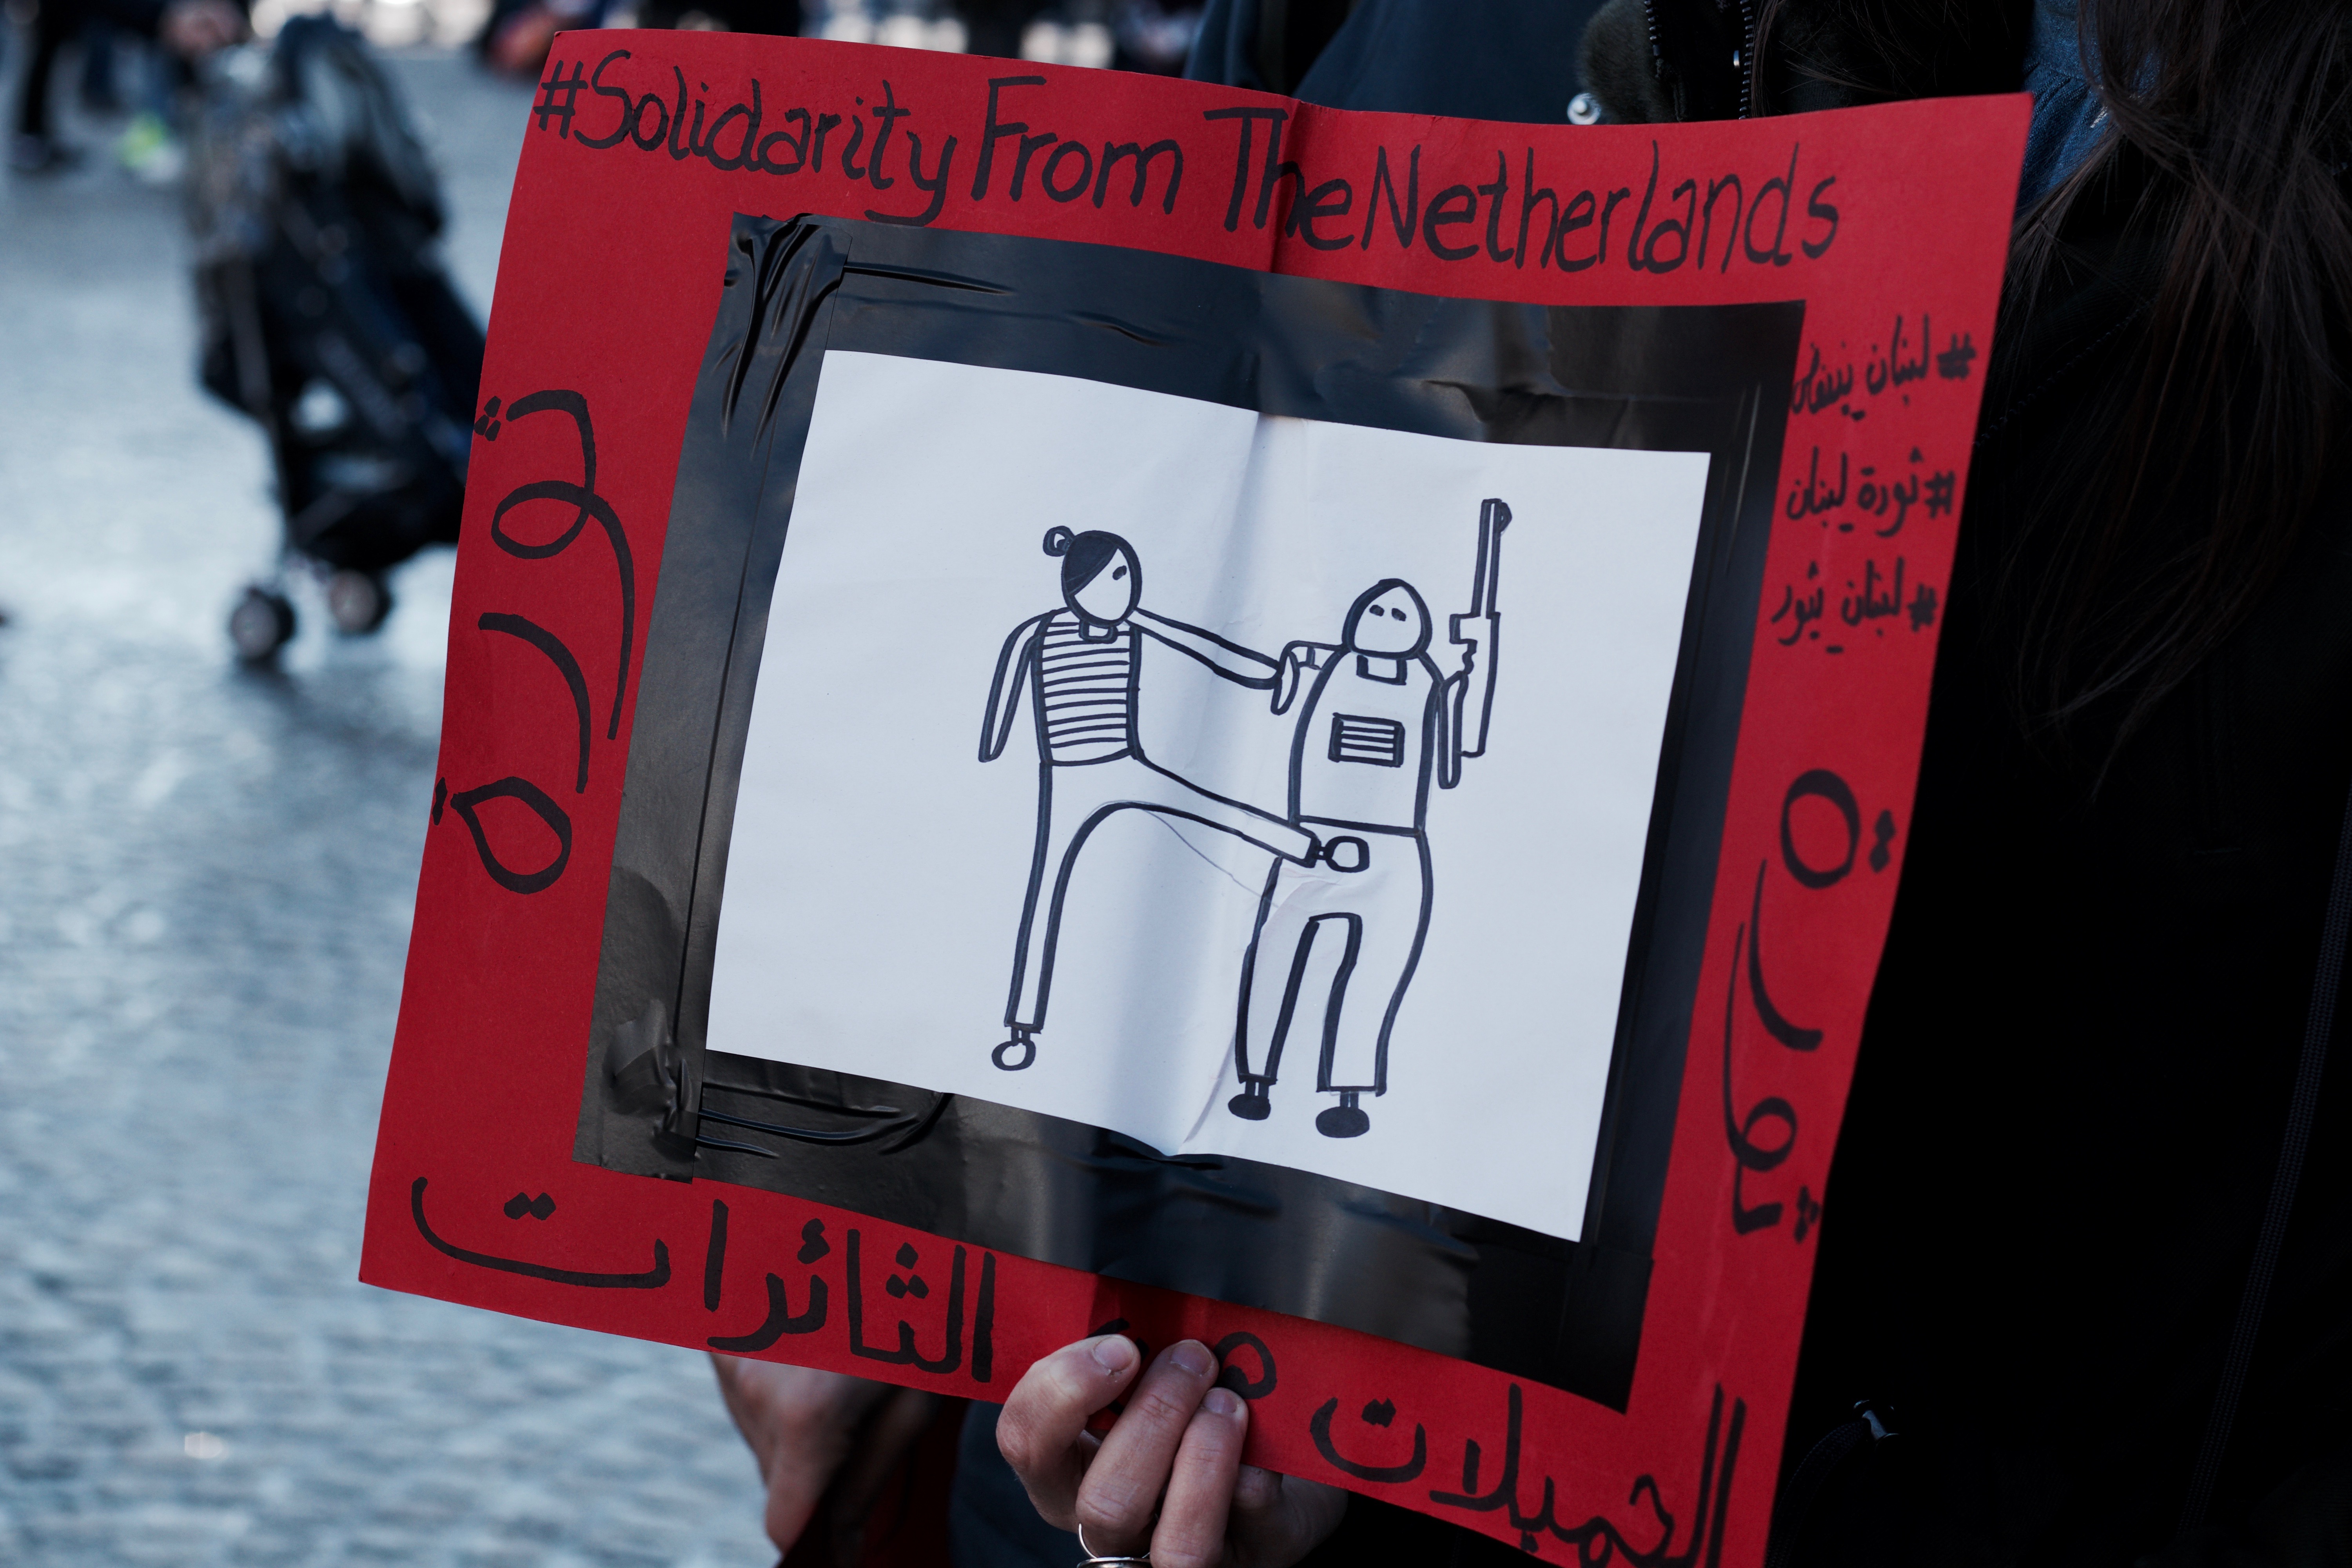 #Solidarity From The Netherlands
#لبنان_ينتفض
#ثورة لبنان
#لبنان_يثور
ثورة
ثورة
الجميلات هن الثائرات